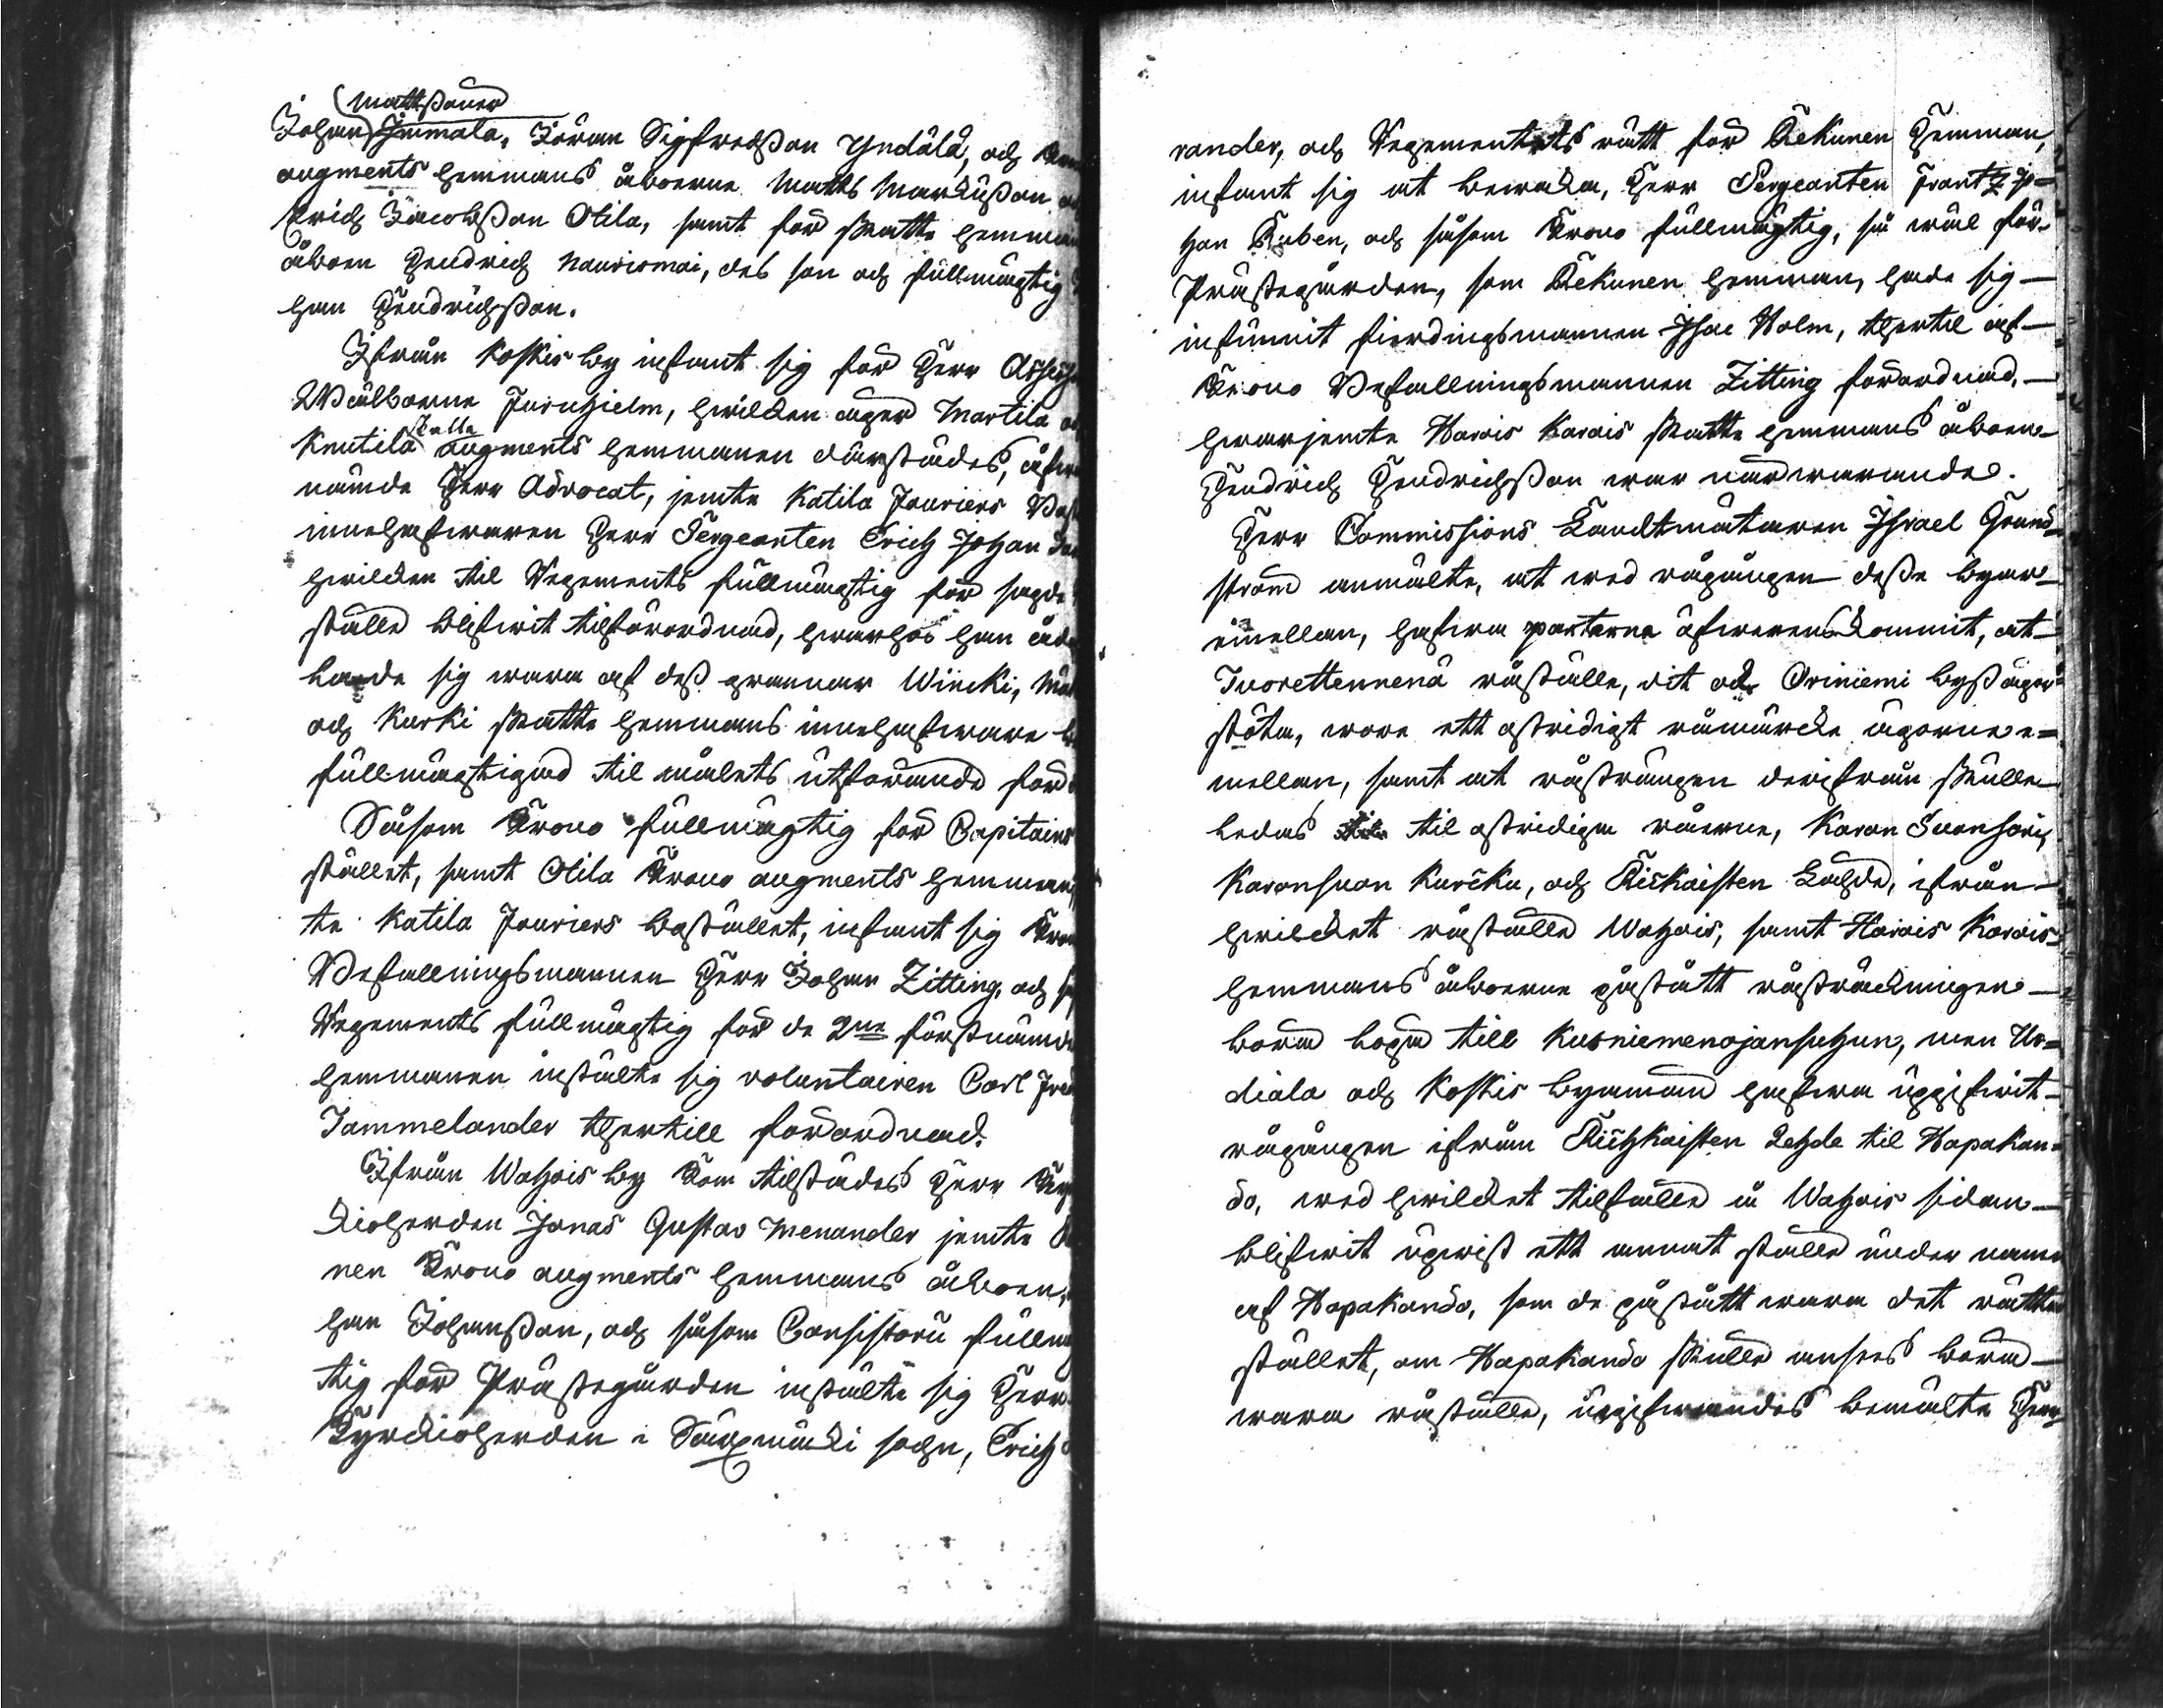 Mattssoner
Johan Jummala, Jöran Sigfredsson Yndälä, och
augments hemmans åboerne Matts Markusson
Erich Jacobsson Otila, samt för skatte hemmans
åboen Hendrich Naurismäi, des son och fullmägtig
han Hendrichsson.
Ifrån Koskis by infant sig för Herr
Wälborne Jurnhjelm, hwilken äger Martila
Knutila Bulla augments hemmanen därstädes,
nämde Herr Advocat, jemte Katila Fouriers
innehafwaren Herr Sergeanten Erich Johan
hwilken til Regements fullmägtig för sagde
ställe blifwit tilförordnad, hwarhos han
lande sig wara af dess grannar Wincki,
och Kurki skatte hemmans innehafware
fullmägtigad til målets utförande
Såsom Krono fullmägtig för Capitains
stället, samt Otila Krono augments hemman,
te Katila Fouriers bostället, infant sig
Befallningsmannen Herr Johan Zitting, och
Regements fullmägtig för de 2ne förstnämde
hemmanen instälte sig volontairen Carl
Tammelander thertill förordnad.
Ifrån Wahois by kom tilstädes Herr
kioherden Jonas Gustav Menander jemte
nen Krono augments hemmans åboen,
han Johansson, och såsom Consistorii
tig för Prästegården instälte sig Herr
Kyrckioherden i Sääxmäki sochn, Erich
rander, och Regementets rätt för Kekunen Hemman,
infant sig at bewaka, Herr Sergeanten Frantz Jo-
han Kuben, och såsom Krono fullmägtig, så wäl för
Prästegården, som Kekunen hemman, hade sig
infunnit fierdingsmannen Isac Holm, thertil af
Krono Befallningsmannen Zitting förordnad,
hwarjemte Harois Karois skatte hemmans åboen
Hendrich Hendrichsson war närwarande.
Herr Commissions Landtmätaren Israel Grund-
ström anmälte, at wed rågången desse byar
emellan, hafwa parterna öfwerenskommit, at
Tuorettennenä råställe, dit och Oriniemi bys ägor
stöta, wore ett ostridigt råmärcke ägorne e-
mellan, samt at råsträngen derifrån skulle
ledas til ostridiga råerne, Karon Suonsari,
Karonsuon Kurcku, och Kiskaisten Lähde, ifrån
hwilcket råställe Wahois, samt Harois Karois
hemmans åboerne påstått råsträckningen
böra löpa till Kusniemenojansuhun, men Ur-
diala och Koskis byamän hafwa uppgifwit
rågången ifrån Kiihkaisten Lehde til Hapakan-
do, wed hwilcket tilfälle å Wahois sidan
blifwit upwist ett annat ställe under namn
af Hapakando, som de påstått wara det rätta
stället, om Hapakando skulle anses böra
wara råställe, uppgifwandes bemälte Herr